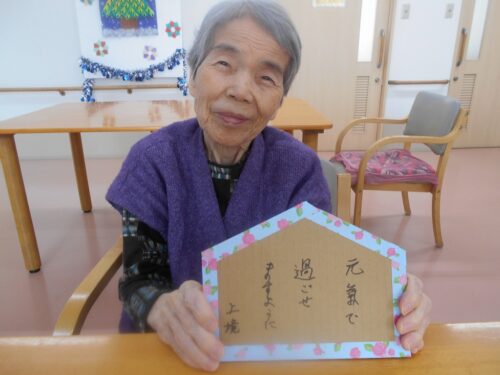 元氣で
過ごせ
ますように
上境